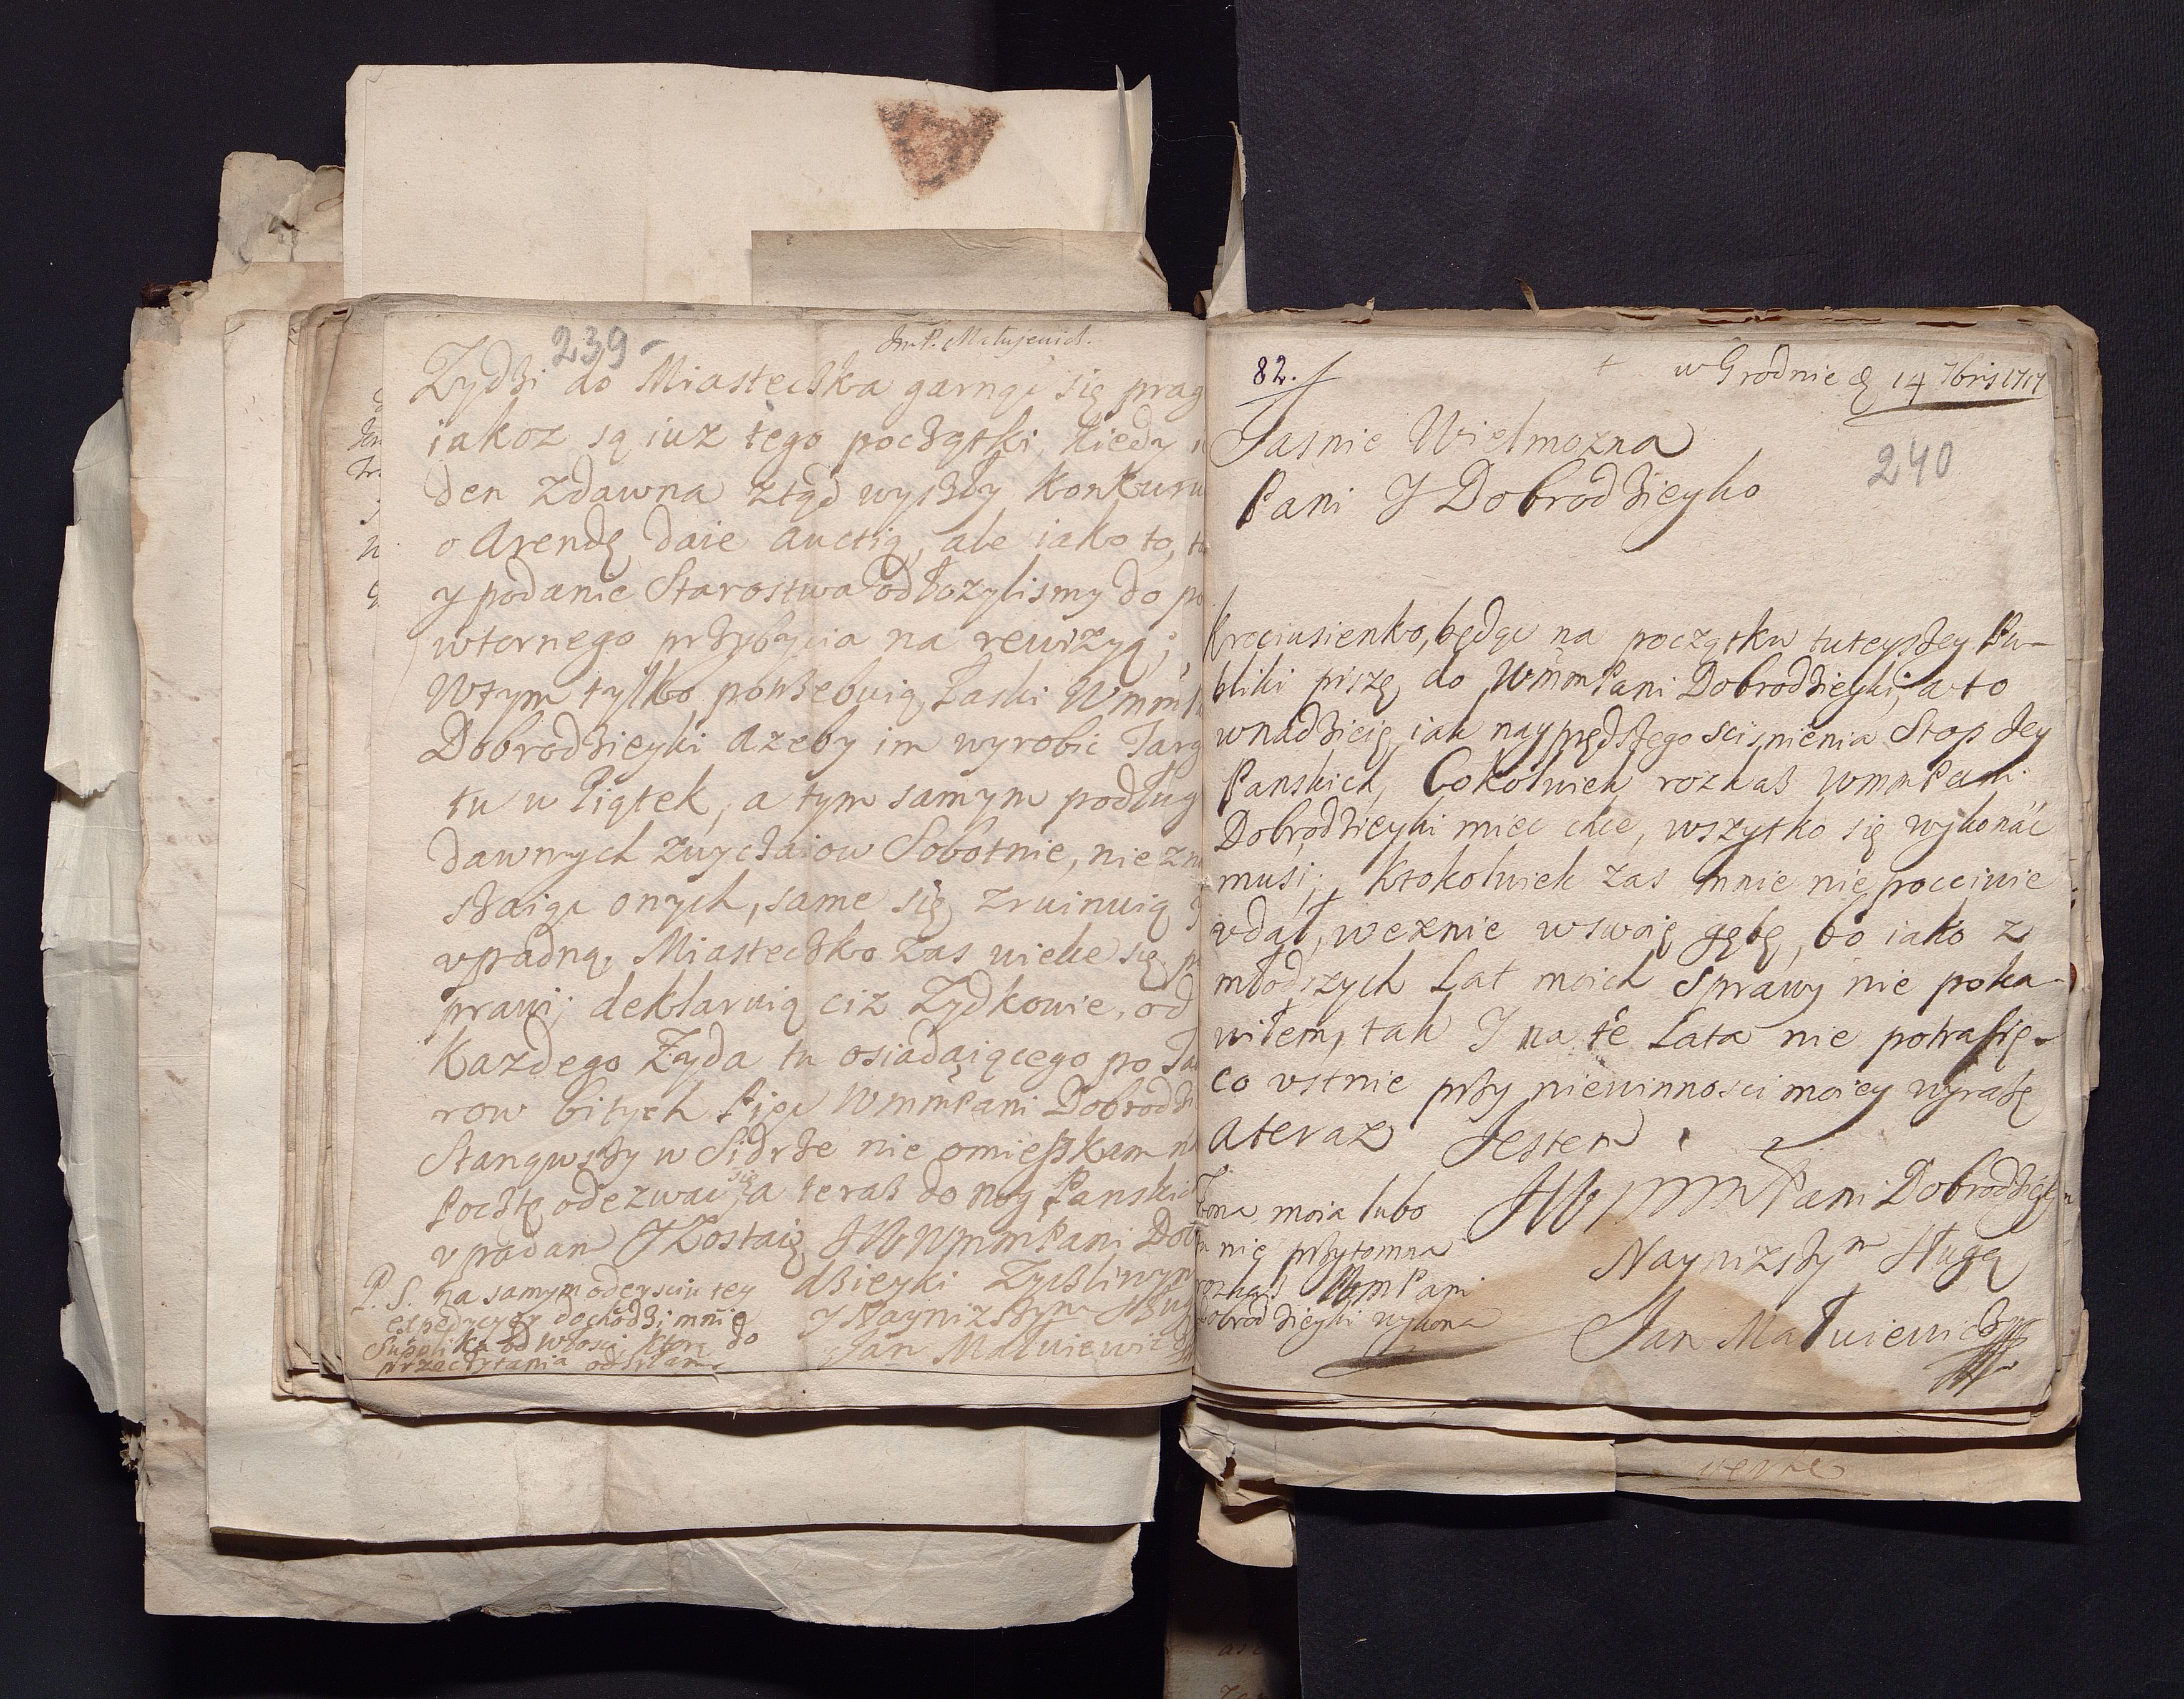 239
Jm P. Matujewicz.
Zydzi do Miasteczka garnąc się prag
iakoz są iuz tego początki, kiedy
den zdawna ztąd wyszły Konkuru
o Arendę daie auctią, ale iako to,
y podanie Starostwa odłozylismy do po
wtornego przybycia na rewizyą;
Wtym tylko potrzebuią Łaski Wmm
Dobrodzieyki azeby im wyrobic Targ
tu w Piątek, a tym samym podług
dawnych zwyczaiow Sobotnie, nie zn
szaiąc onych, same się zruinuią
upadną, Miasteczko zas wiele się po
prawi; deklaruią ciz Zydkowie, od
Kazdego Zyda tu osiadaiącego po Ta
row bitych Pięc WmmPani Dobrodzi
Stanąwszy w Sidrze nie omieszkam
Pocztę odezwac się, a teraz do nog Panskich
upadam J Zostaię JW WmmPani Dob
dzieyki Zyczliwym
J Naynizszym Sług
Jan Matuiewicz
P. S. na samym odeysciu tey
expedycyey dochodzi mnie
Supplika od włosci, ktorą do
przeczytania odsyłam
82.
w Grodnie d 14 7bris 1717
240
Jasnie Wielmozna
Pani J Dobrodzieyko
Krociusienko, będąc na początku tuteyszey Pu-
bliki piszę do WmmPani Dobrodzieyki, a to
w nadzieię iak nayprędszego scisnienia Stop Jey
Panskich, Cokolwiek rozkaz WmmPani
Dobrodzieyki miec chce, wszytko się wykonac
musi; Ktokolwiek zas mnie niepocciwie
udał, weznie w swoię gębę, bo iako z
młodszych Lat moich Sprawy nie poka-
wiłem, tak J na te Lata nie potrafię
co ustnie przy niewinnosci moiey wyrazę
A teraz Jestem
JW WmmPani Dobrodzieyki
Naynizszym Sługą
Jan Matuiewicz
Zona moia lubo
nie przytomna
rozkaz WmmPani
Dobrodzieyki wykona